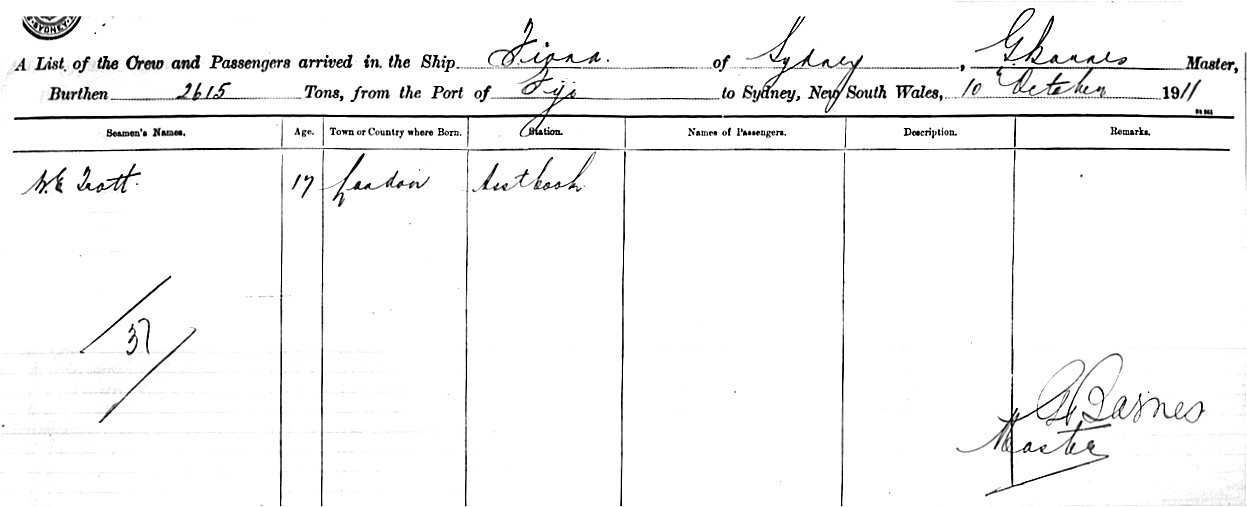 SYDNEY
A List of the Crew and Passengers arrived in the Ship Fiona of Sydney, G Barnes Master,
Burthen 2615 Tons, from the Port of Fiji to Sydney, New South Wales, 10 October 1911
Seamen's Names. Age. Town or Country where Born. Station. Names of Passengers. Description. Remarks.
W.E Trott. 17 London Asst Cook
37
G Barnes
Master